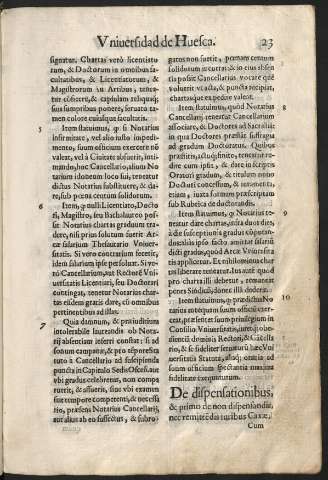 Vniuersidad de Huesca. 23
signatur. Chartas verò licentiato
rum, & Doctorum in omnibus fa
cultatibus, & Licentiatorum, &
Magistrorum in Artibus, tenea
tur cõficere, & capitulam reliquaq;
suis sumptibus ponere, seruato ta-
men colore cuiusque facultatis.
5 Item statuimus, q̃ si Notarius
infirmitate, vel alio iusto impedi-
mento, suum officium exercere nõ
valeat, vel à Ciuitate absuerit, intimando,
hoc Cancellario, alium No
tarium idoneum loco sui, teneatur
dictus Notarius substituere, & da-
re, sub pœna centum solidorum.
6 Item, q̃ nulli Licentiato, Docto
ri, Magistro, seu Bachalaureo pos-
sit Notarius chartas graduum tra-
dere, nisi prius solutum fuerit Ar-
cæ salarium Thesautario Vniuer-
sitatis. Si verò contrarium fecerit,
idem salarium ipse persoluat. Si ve
rò Cancellarium, aut Rectorẽ Vni
uersitatis Licentiari, seu Doctorari
contingat, tenetur Notarius char-
tas eisdem gratis dare, cũ omnibus
pertinentibus ad illas.
7 Quia damnum, & præiuditium
intolerabile Iurantibus ob Notarij
absentiam inferri constat: si ad
sonum campanæ, & pro apperasta
tuto à Cancellario ad suscipienda
puncta in Capitulo Sedis Oscẽs. aut
vbi gradus celebretur, non compa
ruerit, & affuerit, siue vbi examen
aut tempore competenti, & necessa
rio, præsens Notarius Cancellarij,
aut alius ab eo suffectus, & subro-
gatus non fuerit, pœnam centum
solidorum incurrat: & in eius absen
tia possit Cancellarius vocare quẽ
voluerit vt acta, & puncta recipiat,
chartasque expedire valeat.
8 Item statuimus, quod Notarius
Cancellarij teneatur Cancellarium
associare, & Doctores ad Sacristiã
in qua Doctores præstãt suffragia
ad gradum Doctoratus, & ad honorem
redire cum Doctoratus. Quibus
præstitis, actuq; finito, teneatur redire
cum ipsis, & dare in scriptis
Oratori gradum, & titulum nouo
Docturi concessum, & autumnitatem,
iuxta formam præscriptam
sub Rubrica de doctorandis.
9 Item statuimus, q̃ Notarius te-
neatur dare chartas, infra duos dies,
à die susceptionis gradus cõputan-
dos: alias ipso facto amittat salariũ
dicti gradus, quod Arcæ Vniuersita
tis applicetur. Et nihilominus char
tas liberare teneatur. Ius autẽ quod
pro chartis illi debetur, remaneat
penes Sindicũ, donec illas dederit.
10 Item statuimus, q̃ prædictus No
tarius antequam suum officium exer
ceat, præsentet suum priuilegium in
Consilio Vniuersitatis, iuretq; obedientiã
dominis Rectori, & Cõsilia
rijs, & se fideliter seruaturũ hæc Vni
uersitatis Statuta, aliaq; omnia ad
suum officium spectantia omnino
fideliter exequuturum.
De dispensationibus,
& primo de non dispensandis,
nec remittẽdis iuribus Caxæ,
Cum